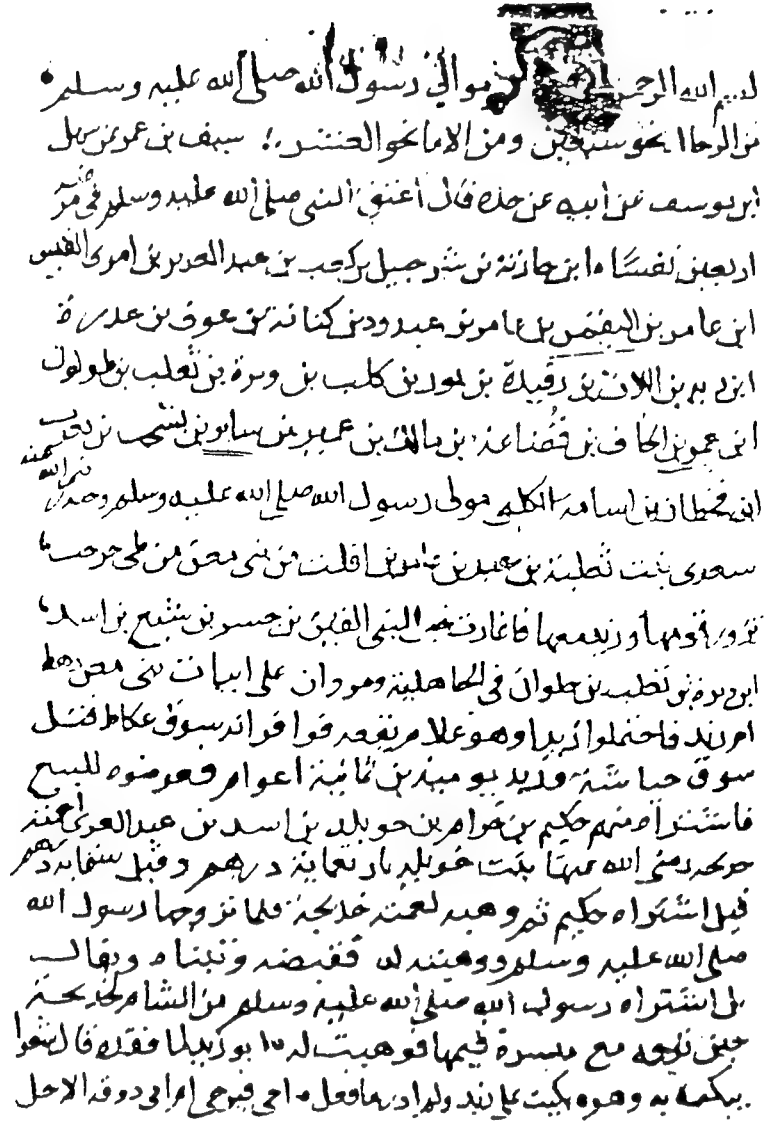 بسم الله الرحمن موالي رسول الله صلى الله عليه وسلم
من الرجال نحو ستين ومن الاما نحو العشر سيف بن عمر عن سهل
ابن يوسف عن ابيه عن جده قال اعتق النبي صلى الله عليه وسلم في مرضه
اربعين نفسا ابن حارثة بن شرحبيل بن كعب بن عبد العزى بن امرى القيس
ابن عامر بن النعمن بن عامر بن عبدود بن كنانة بن عوف بن عذرة
ابن زيد بن اللات بن رفيدة بن ثور بن كلب بن وبرة بن تغلب بن حلوان
ابن عمرو بن الحاف بن قضاعة بن مالك بن عمير بن سابو بن يشجب بن يعرب
ابن قحطان بن اسامة الكلبي مولى رسول الله صلى الله عليه وسلم
سعدى بنت ثعلبة بن عبد بن عامر بن افلت من بنى معن من طى
تزور قومها وزيد معها فاغارت خيل لبنى القين بن جسر بن شيع بن اسد
ابن وبرة بن تغلب بن حلوان في الجاهلية ومروا على ابيات بنى معن رهط
ام زيد فاحتملوا زيدا وهو غلام يفعه فوافوا به سوق عكاظ فقيل
سوق حباشة وزيد يوميذ بن ثمانية اعوام فعرضوه للبيع
فاشتراه منهم حكيم بن حزام بن خويلد بن اسد بن عبد العزى لعمته
خديجه رضي الله عنها بنت خويلد باربعماية درهم وقيل ستمايه درهم
قيل اشتراه حكيم ثم وهبه لعمته خديجة فلما تزوجها رسول الله
صلى الله عليه وسلم ووهبته له فقبضه وتبناه ويقال
بل اشتراه رسول الله صلى الله عليه وسلم من الشام لخديجة
حين توجه مع ميسرة قيمها فوهبته له ابو زيد لما فقده قال شعرا
يبكيه به وهو بكيت على زيد ولم ادر ما فعل احي فيرجى ام اتى دونه الاجل